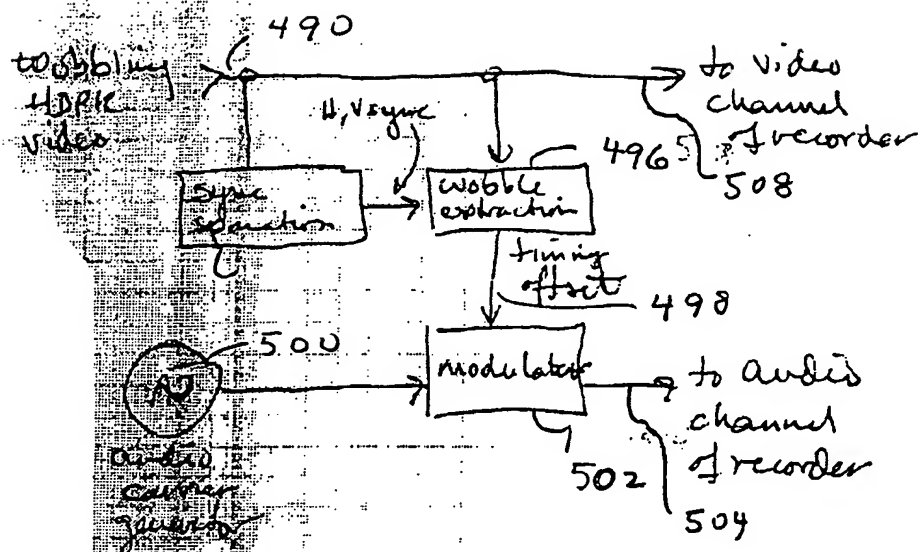 490
wobbling
HDPR
video
H, Vsync
to video
channel
of recorder
508
sync
separation
wobble
extraction
496
timing
offset
498
500
modulator
to audio
channel
of recorder
502
504
audio
carrier
generator